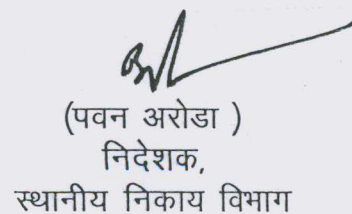 (पवन अरोडा )
निदेशक,
स्थानीय निकाय विभाग